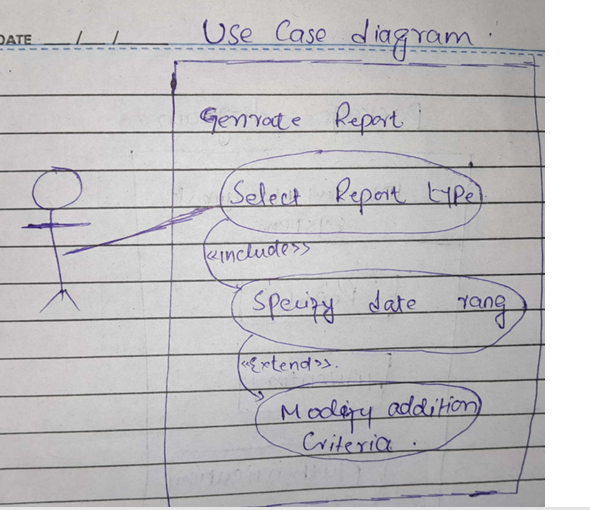 DATE / /
Use Case diagram.
Genrate Report
Select Report type
<<include>>
Specify date rang
<<Extend>>.
Modify addition
Criteria.